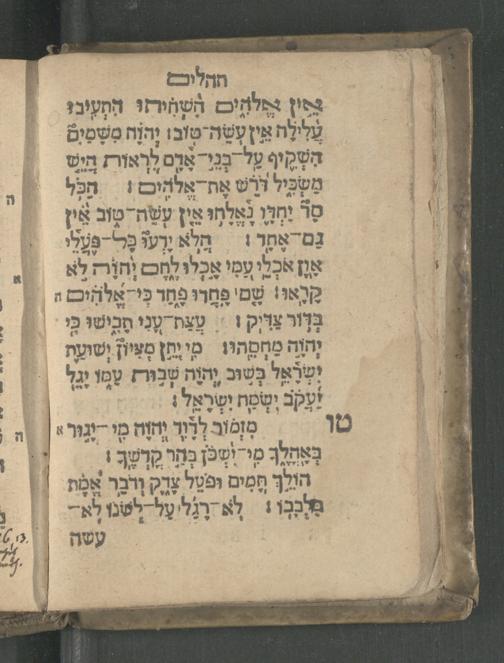 תהלים
אֵין אֱלֹהִים הִשְׁחִיתוּ הִתְעִיבוּ
עֲלִילָה אֵין עֹשֵׂה־טוֹב׃ יְהוָה מִשָּׁמַיִם
הִשְׁקִיף עַל־בְּנֵי־אָדָם לִרְאוֹת הֲיֵשׁ
מַשְׂכִּיל דֹּרֵשׁ אֶת־אֱלֹהִים׃ הַכֹּל
סָר יַחְדָּו נֶאֱלָחוּ אֵין עֹשֵׂה־טוֹב אֵין
גַּם־אֶחָד׃ הֲלֹא יָדְעוּ כָּל־פֹּעֲלֵי
אָוֶן אֹכְלֵי עַמִּי אָכְלוּ לֶחֶם יְהוָה לֹא
קָרָאוּ׃ שָׁם פָּחֲדוּ פָחַד כִּי־אֱלֹהִים ה
בְּדוֹר צַדִּיק׃ עֲצַת־עָנִי תָבִישׁוּ כִּי
יְהוָה מַחְסֵהוּ׃ מִי יִתֵּן מִצִּיּוֹן יְשׁוּעַת
יִשְׂרָאֵל בְּשׁוּב יְהוָה שְׁבוּת עַמּוֹ יָגֵל
יַעֲקֹב יִשְׂמַח יִשְׂרָאֵל׃
טו מִזְמוֹר לְדָוִד יְהוָה מִי־יָגוּר א
בְּאָהֳלֶךָ מִי־יִשְׁכֹּן בְּהַר קָדְשֶׁךָ׃
הוֹלֵךְ תָּמִים וּפֹעֵל צֶדֶק וְדֹבֵר אֱמֶת
בִּלְבָבוֹ׃ לֹא־רָגַל עַל־לְשֹׁנוֹ לֹא־
עשה